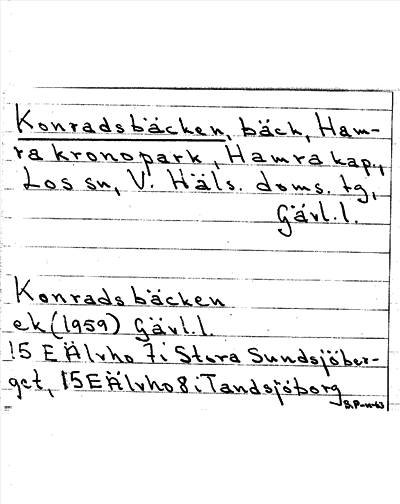 Konradsbäcken, bäck, Ham-
ra kronopark, Hamra kap.,
Los sn, V. Häls. doms. tg,
Gävl.l.
Konradsbäcken
ek (1959) Gävl.l.
15 E Älvho 7 i Stora Sundsjöber-
get, 15 E Älvho 8 i Tandsjöborg